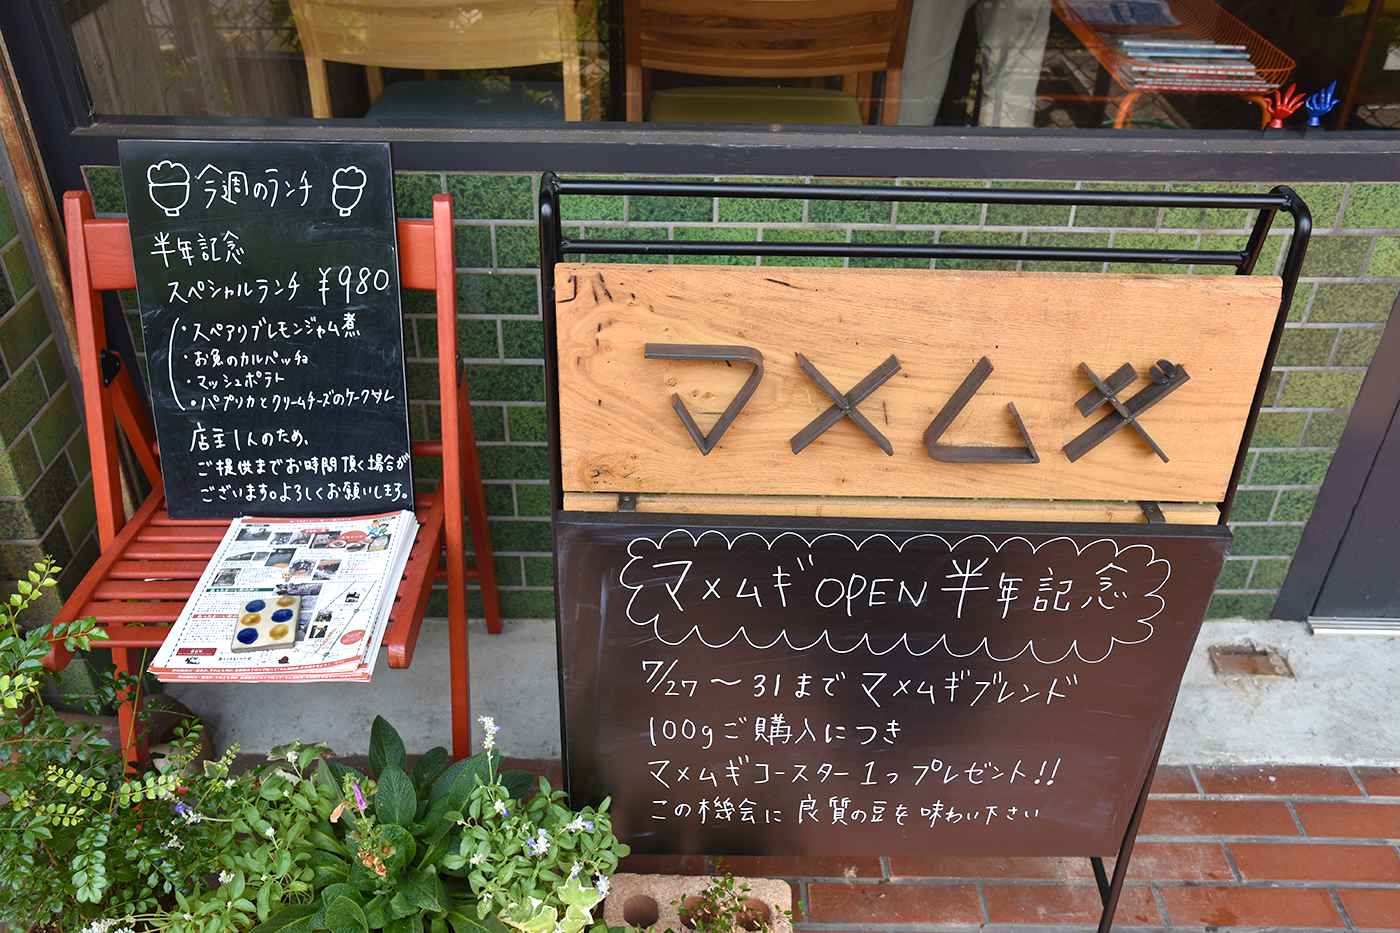 今週のランチ
半年記念
スペシャルランチ ¥980
・スペアリブレモンジャム煮
・お魚のカルパッチョ
・マッシュポテト
・パプリカとクリームチーズのケークサレ
店主1人のため、
ご提供までお時間頂く場合が
ございます。よろしくお願いします。
マメムギ
マメムギOPEN半年記念
7/27〜31まで マメムギブレンド
100gご購入につき
マメムギコースター1つプレゼント!!
この機会に良質の豆を味わい下さい